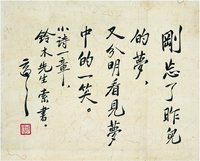 剛忘了昨兒
的夢，
又分明看見夢
中的一笑。
小詩一章，
鈴木先生 索書。